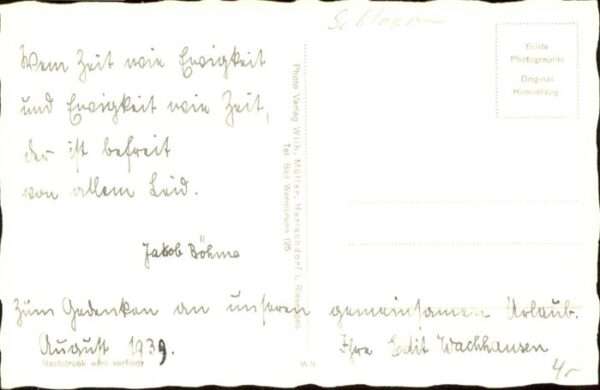 Wem Zeit wie Ewigkeit
und Ewigkeit wie Zeit,
der ist befreit
von allem Leid.
Jakob Böhme
Zum Gedenken an unseren gemeinsamen Urlaub.
August 1939.
Ihre Edit Wachhausen
Photo Verlag Wilh. Müller,
Tel. Bad Warmbrunn 125
Echte
Photographie
Original
Nachdruck wird verfolgt
4,-